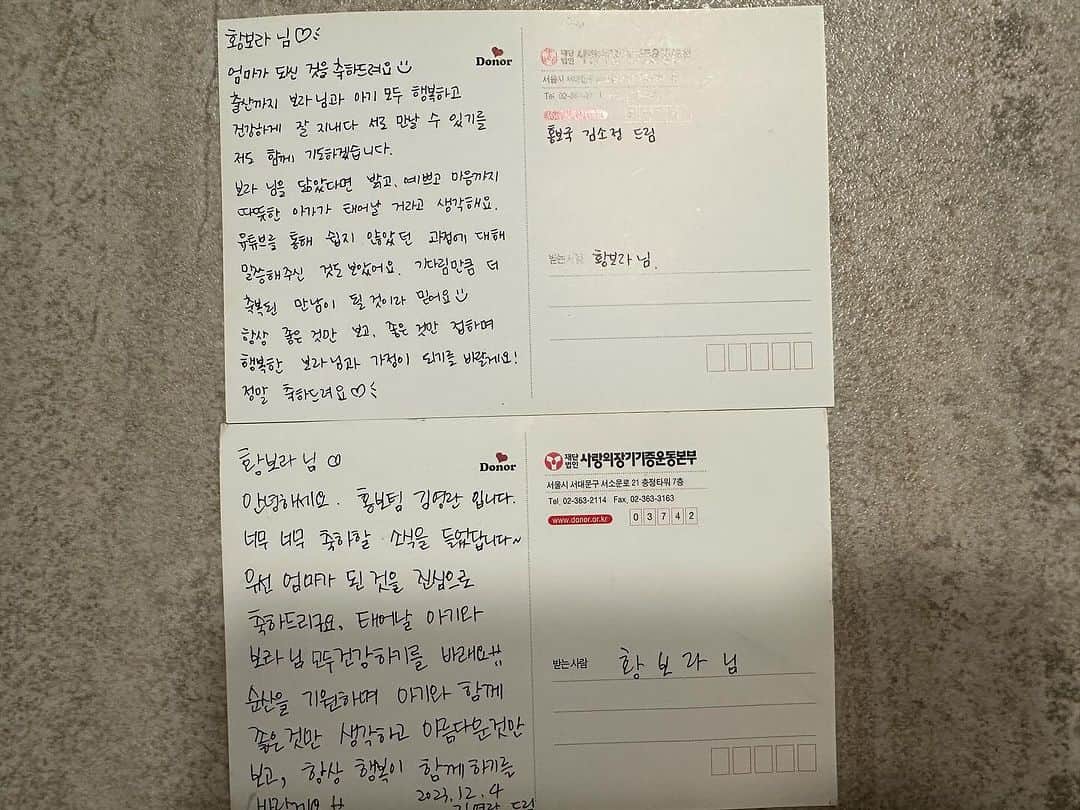 황보라 님♡
엄마가 되신 것을 축하드려요
출산까지 보라님과 아기 모두 행복하고
건강하게 잘 지내다 서로 만날 수 있기를
저도 함께 기도하겠습니다.
보라 님을 닮았다면 밝고, 예쁘고 마음까지
따뜻한 아가가 태어날 거라고 생각해요.
유튜브를 통해 쉽지 않았던 과정에 대해
말씀해주신 것도 보았어요. 기다림만큼 더
축복된 만남이 될 것이라 믿어요
항상 좋은 것만 보고, 좋은 것만 접하며
행복한 보라님과 가정이 되기를 바랄게요!
정말 축하드려요♡
Donor
재단
법인
서울시 서대문구
Tel. 02-36
홍보국 김소정 드림
받는사람 황보라 님.
황보라 님 ♡
안녕하세요. 홍보팀 김영란 입니다.
너무 너무 축하할 소식을 들었답니다~
우선 엄마가 된 것을 진심으로
축하드리구요, 태어날 아기와
보라 님 모두 건강하기를 바래요!!
순산을 기원하며 아기와 함께
좋은것만 생각하고 아름다운것만
보고, 항상 행복이 함께하기를
바랄게요
2023.12.4
김영란 드림
Donor
재단법인 사랑의장기기증운동본부
서울시 서대문구 서소문로 21 충정타워 7층
Tel. 02-363-2114 Fax. 02-363-3163
www.donor.or.kr 0 3 7 4 2
받는사람 황 보 라 님